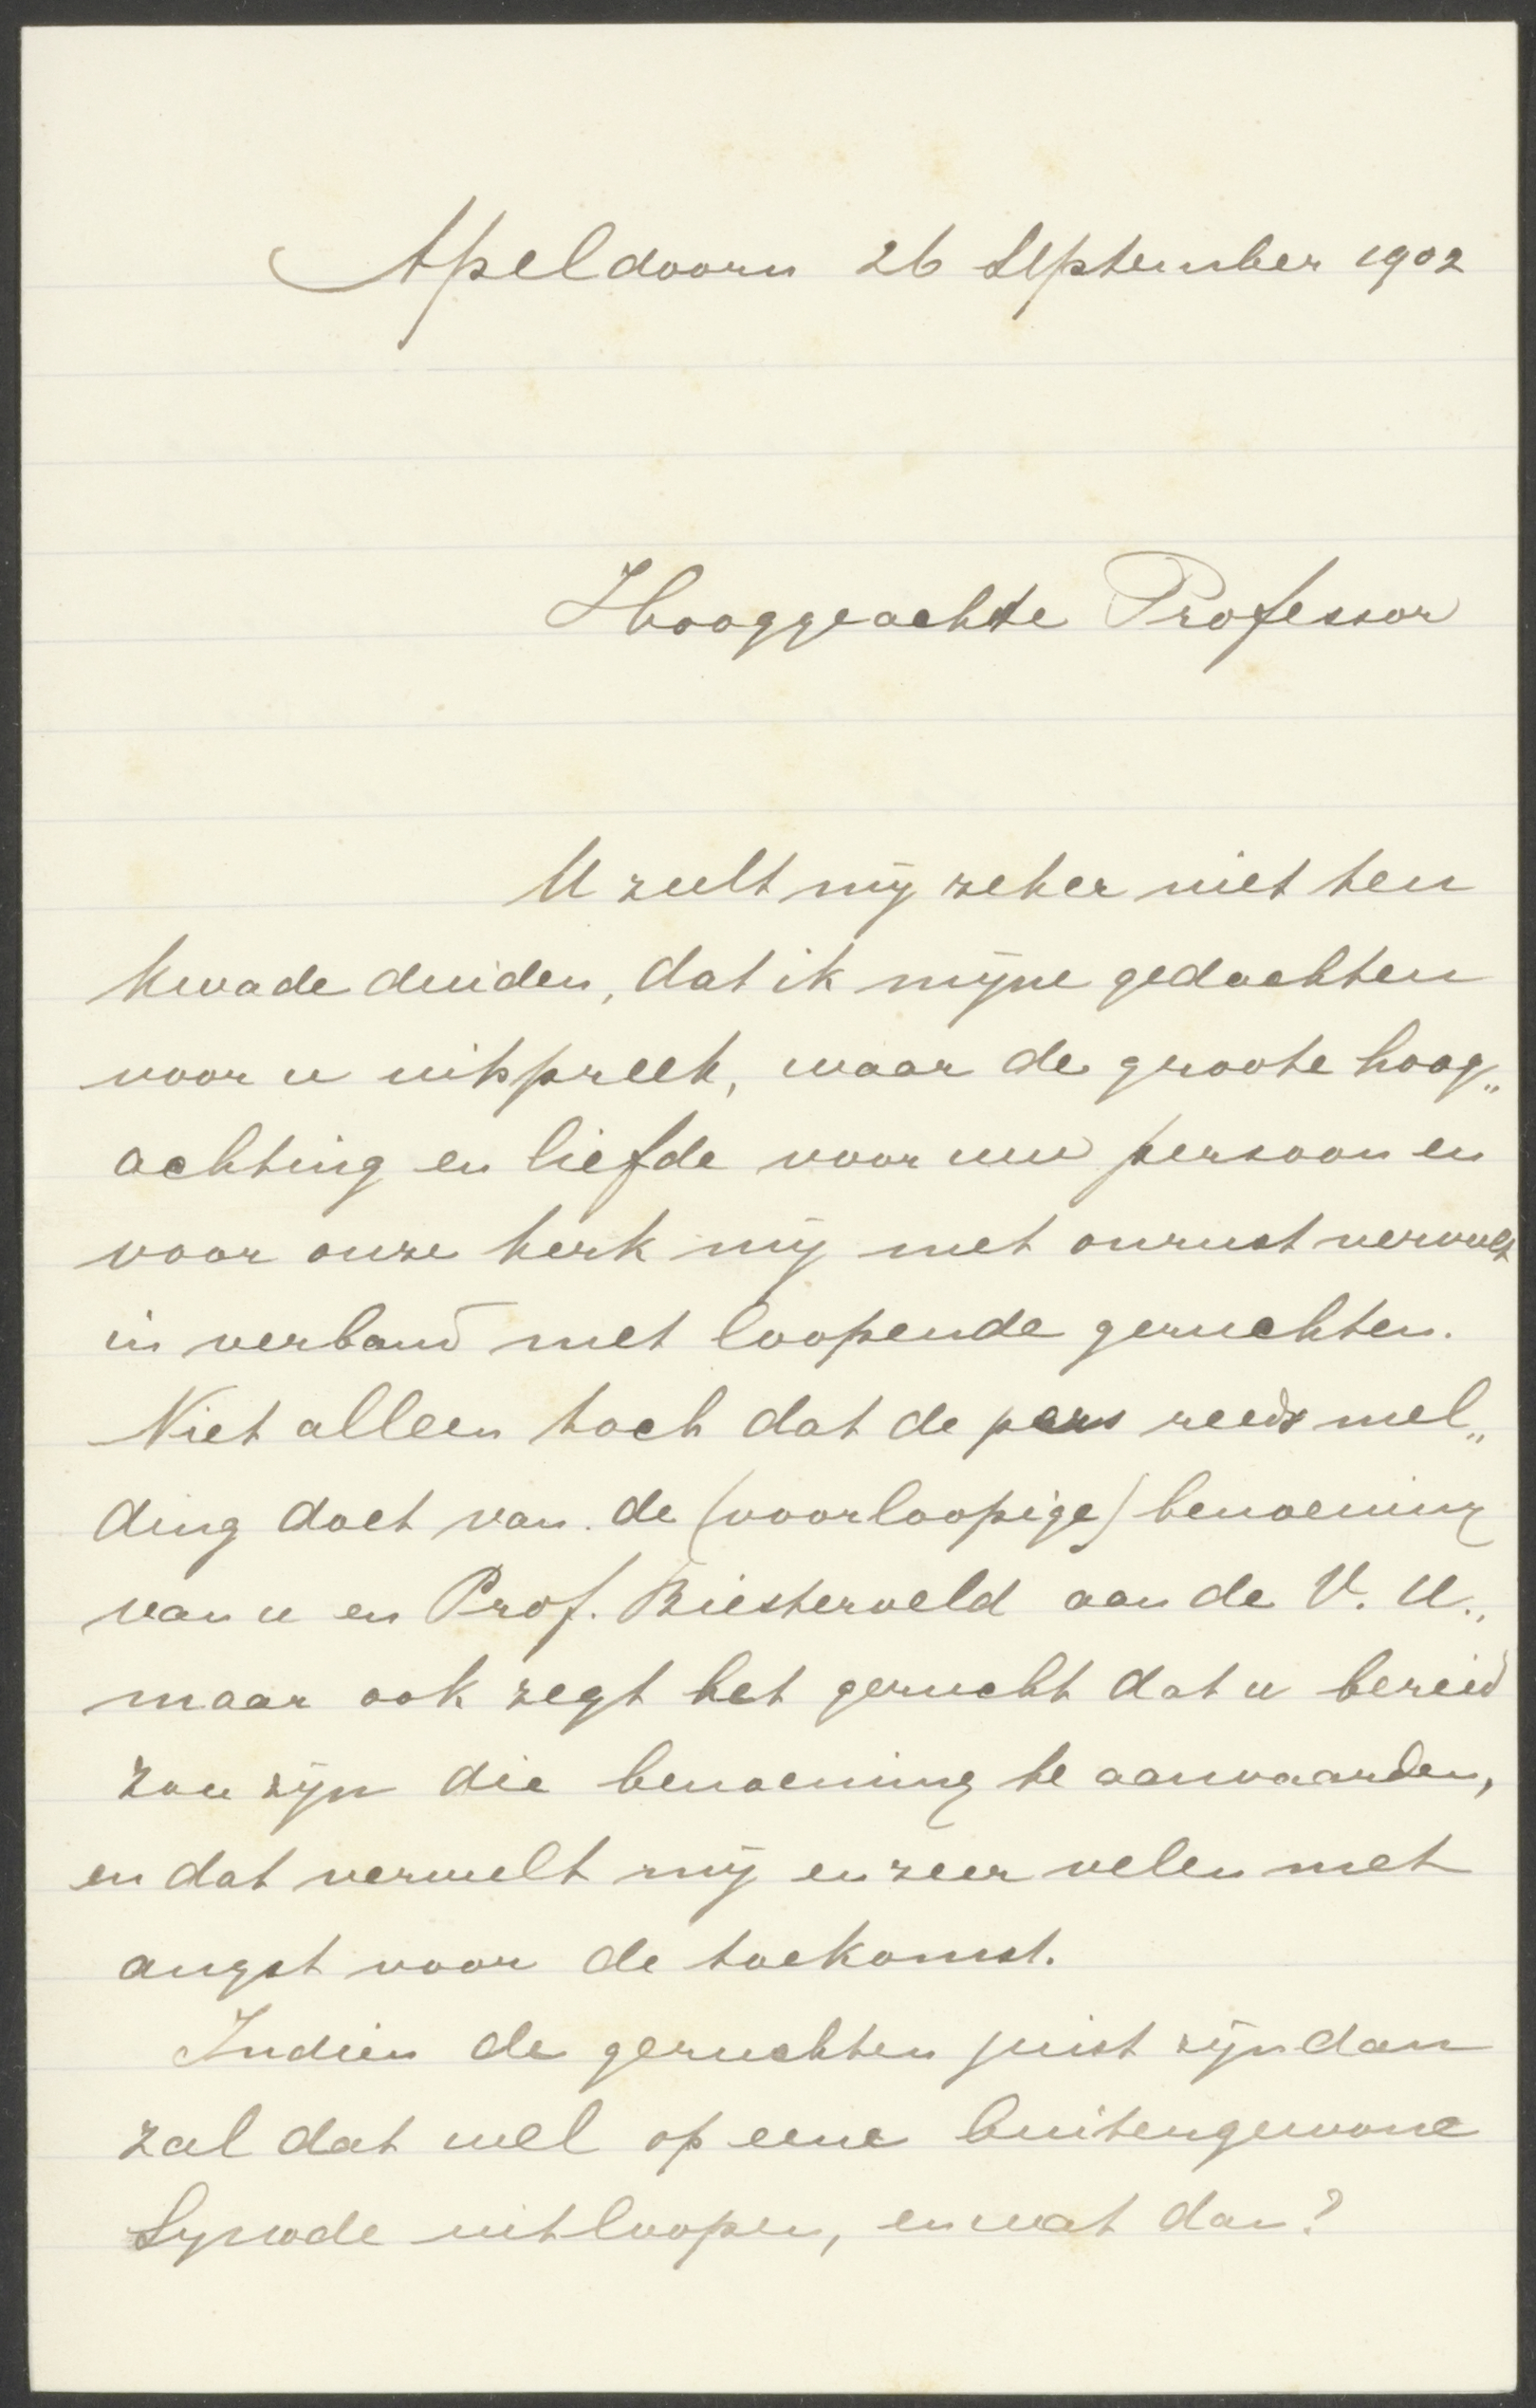 Apeldoorn 26 September 1902
Hooggeachte Professor
U zult mij zeker niet ten
kwade duiden, dat ik mijne gedachten
voor u uitspreek, waar de groote hoog„
achting en liefde voor uw persoon en
voor onze kerk mij met onrust vervult
in verband met loopende geruchten.
Niet alleen toch dat de pers reeds mel„
ding doet van de (voorloopige) benoeming
van u en Prof. Biesterveld aan de V. U.,
maar ook zegt het gerucht dat u bereid
zou zijn die benoeming te aanvaarden,
en dat vervult mij en zeer velen met
angst voor de toekomst.
Indien de geruchten juist zijn dan
zal dat wel op eene buitengewone
Synode uitloopen, en wat dan?